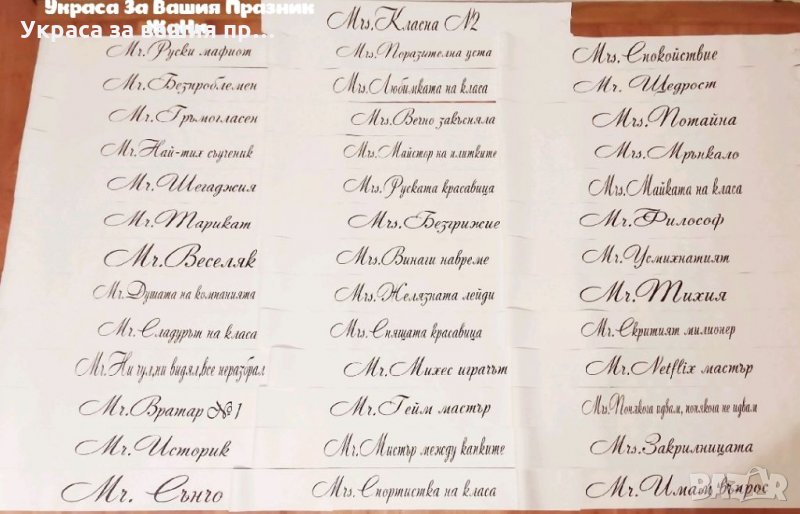 Украса За Вашия Празник
ЖаНи
Украса за вашия пр...
Mr. Руски мафиот
Mr. Безпроблемен
Mr. Гръмогласен
Mr. Най-тих съученик
Mr. Шегаджия
Mr. Тарикат
Mr. Веселяк
Mr. Душата на компанията
Mr. Сладурът на класа
Mr. Ни чул, ни видял, все неразбрал
Mr. Вратар №1
Mr. Историк
Mr. Сънчо
Mrs. Класна №2
Mrs. Поразителна уста
Mrs. Любимката на класа
Mrs. Вечно закъсняла
Mrs. Майстор на плитките
Mrs. Руската красавица
Mrs. Безгрижие
Mrs. Винаги навреме
Mrs. Желязната лейди
Mrs. Спящата красавица
Mr. Михес играчът
Mr. Гейм мастър
Mr. Мистър между капките
Mrs. Спортистка на класа
Mrs. Спокойствие
Mr. Щедрост
Mrs. Потайна
Mrs. Мрънкало
Mrs. Майката на класа
Mr. Философ
Mr. Усмихнатият
Mr. Тихия
Mr. Скритият милионер
Mr. Netflix мастър
Mrs. Понякога идвам, понякога не идвам
Mrs. Закрилницата
Mr. Имам въпрос
BAZAR